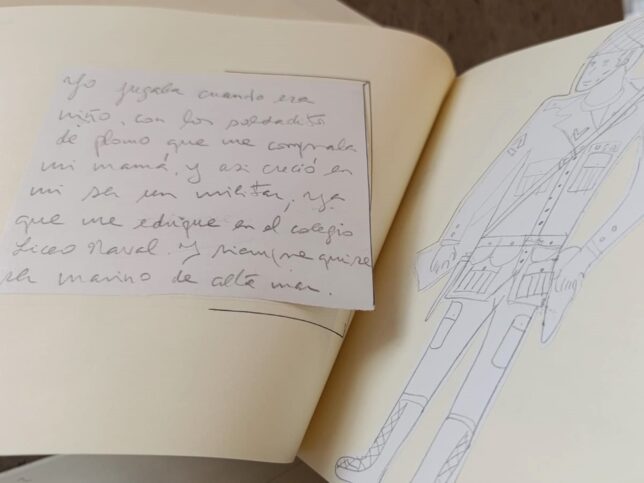 Yo jugaba cuando era
niño, con los soldadito
de plomo que me compraba
mi mamá, y asi creció en
mi ser un militar, ya
que me eduique en el colegio
Liceo Naval. Y siempre quise
ser marino de alta mar.